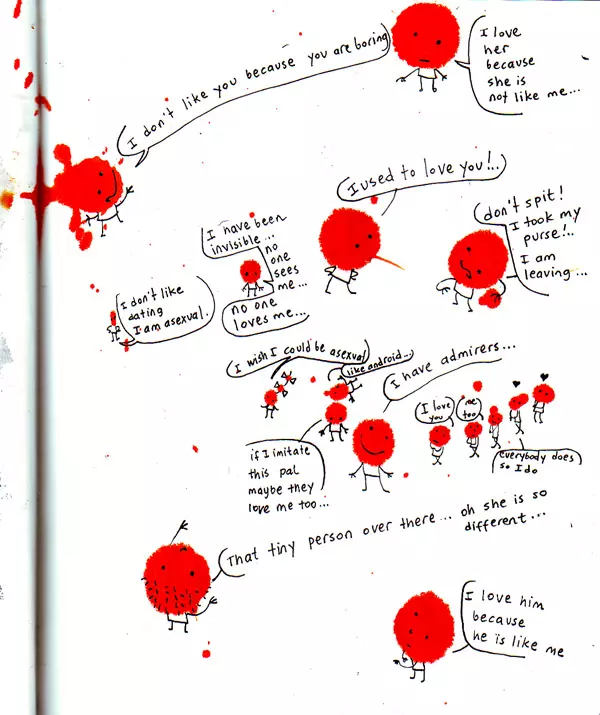 I love
her
because
she is
not like me...
I don't like you because you are boring
I used to love you!..
don't spit!
I took my
purse!..
I am
leaving...
I have been
invisible...
no
one
sees
me...
no one
loves me...
I don't like
dating
I am asexual.
I wish I could be asexual
like android...
I have admirers...
I love
you
me
too
everybody does
so I do
if I imitate
this pal
maybe they
love me too...
That tiny person over there... oh she is so
different...
I love him
because
he is like me